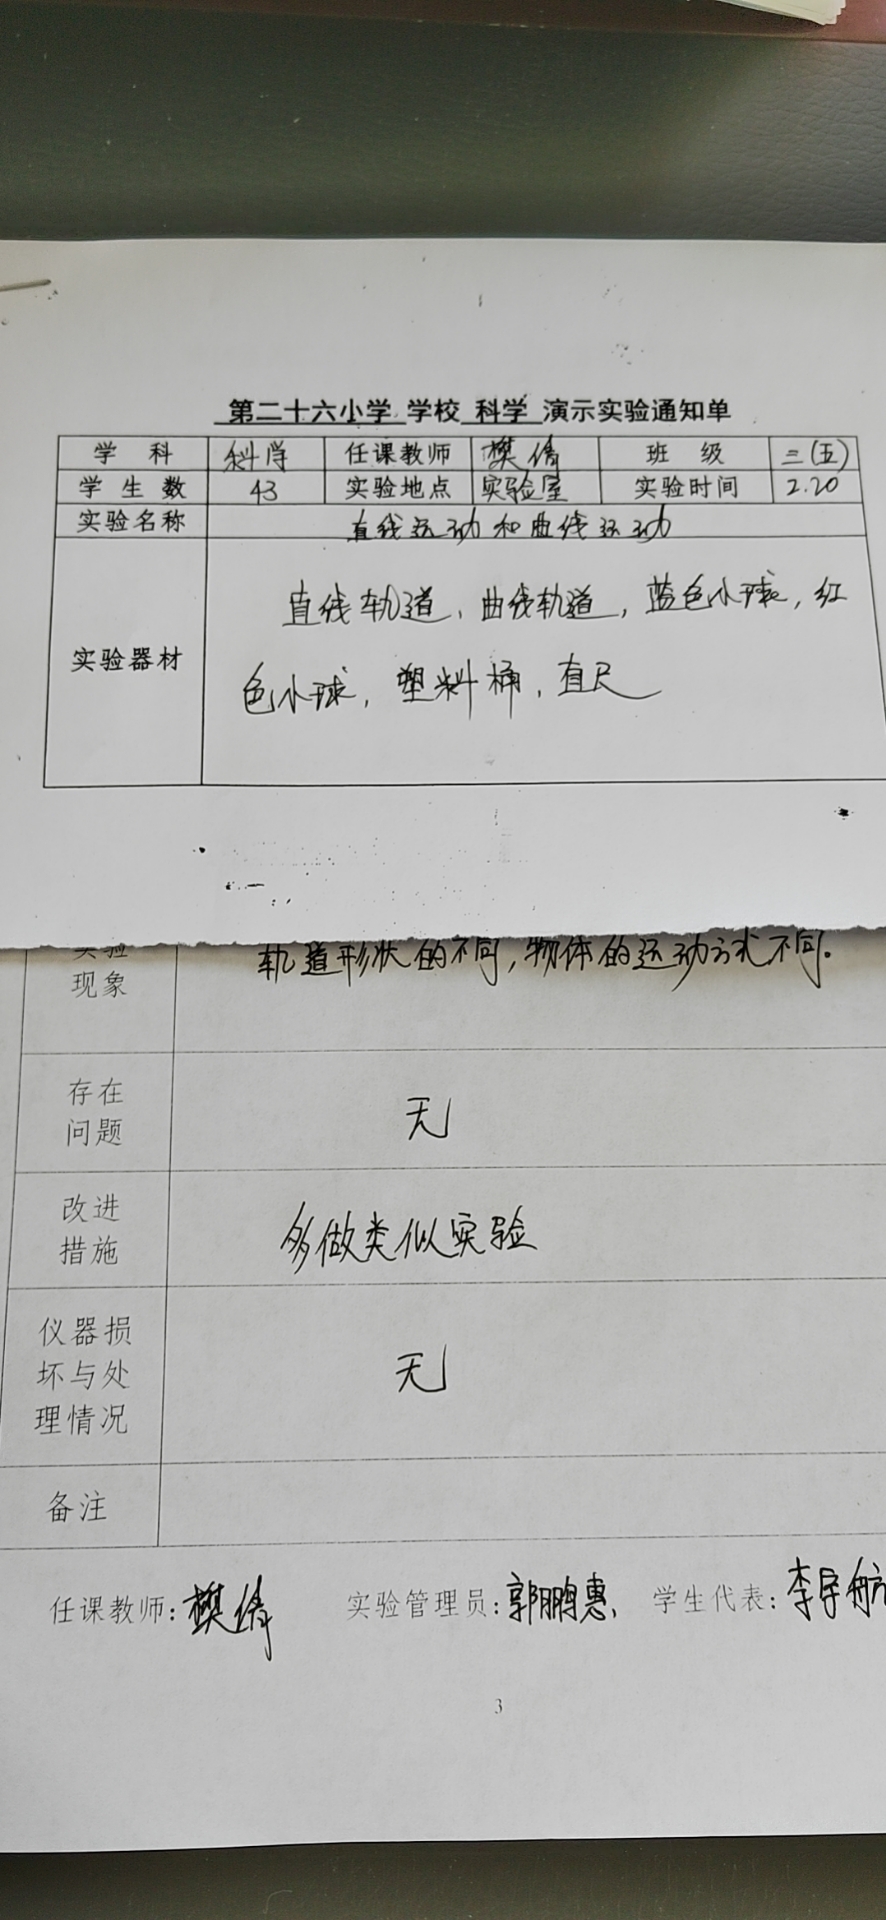 第二十六小学 学校 科学 演示实验通知单
学 科 科学 任课教师 樊倩 班 级 三(五)
学生数 43 实验地点 实验室 实验时间 2.20
实验名称 直线运动和曲线运动
实验器材
直线轨道、曲线轨道，蓝色小球，红
色小球，塑料桶，直尺
实验
现象
轨道形状的不同，物体的运动方式不同。
存在
问题
无
改进
措施
多做类似实验
仪器损
坏与处
理情况
无
备注
任课教师：樊倩 实验管理员：郭鹏惠、 学生代表：李宇航
3